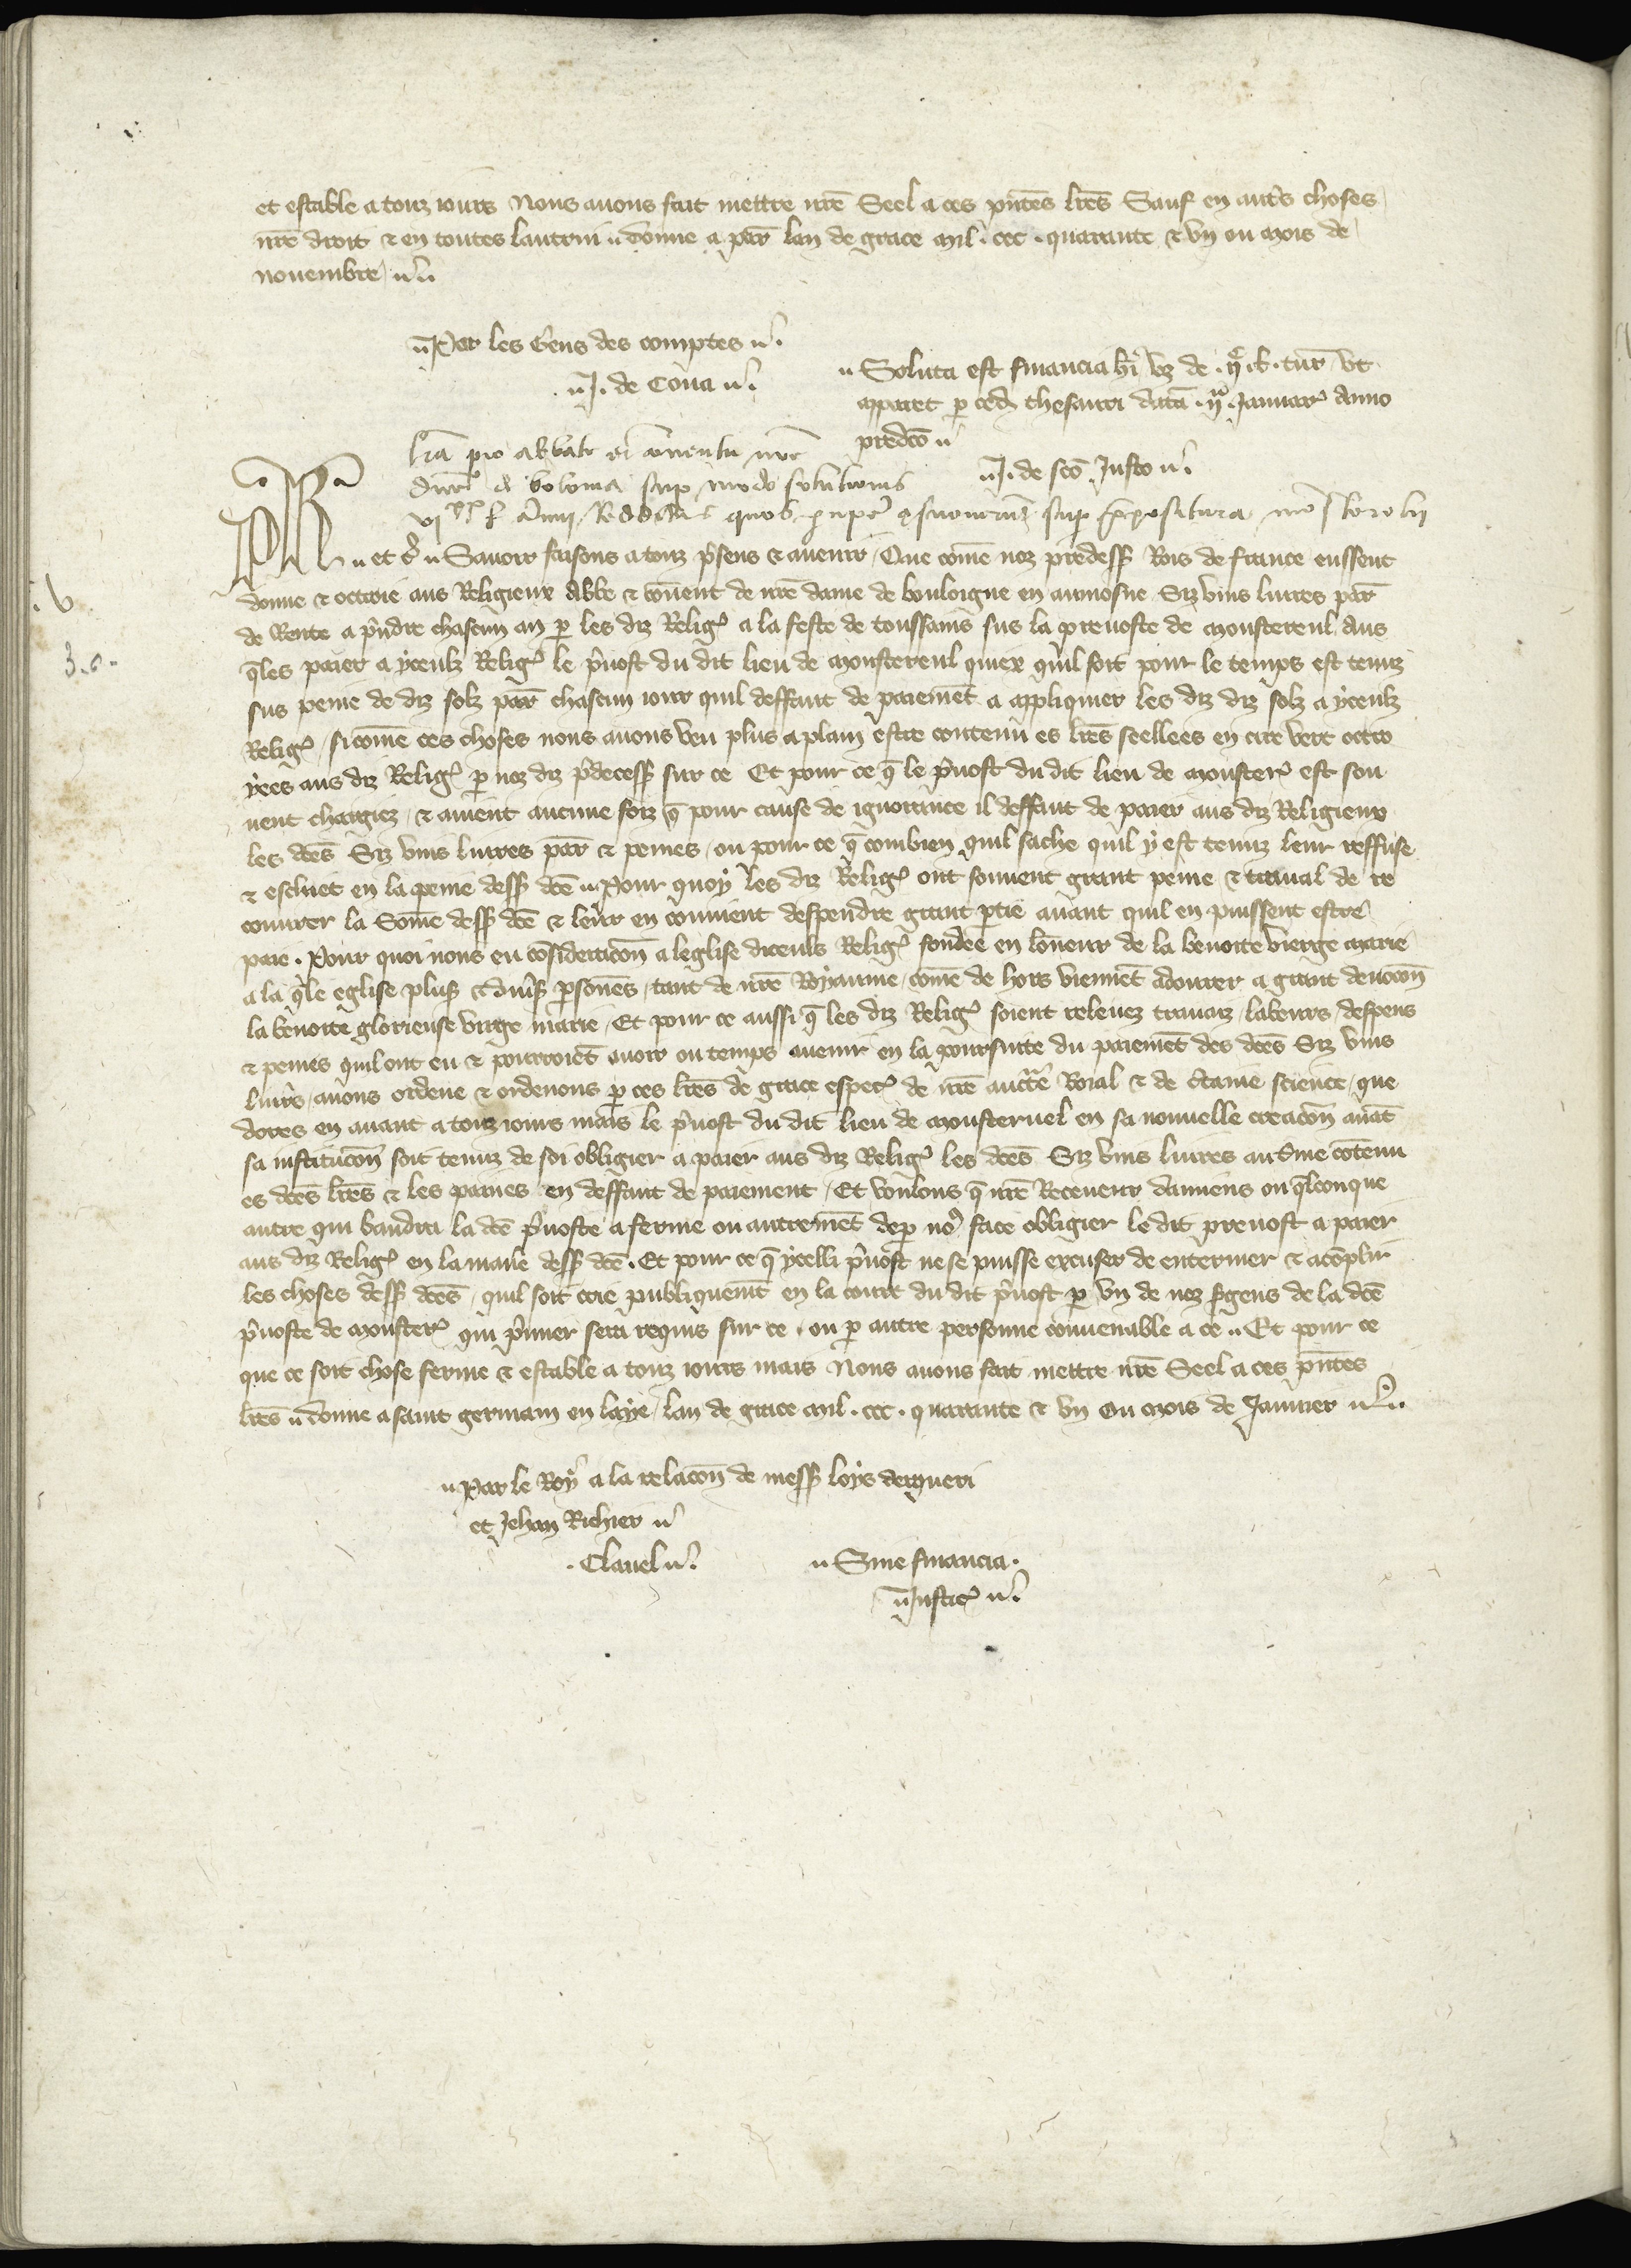 et estable a touz iours Nous auons fait mettre nr̃e Seel a ces pñtes lr̃es Sauf en autˢs choses
nr̃e droit & en toutes lautrui ꝟ donne a par̃ lan de grace mil . ccc . quarante & vn ou mois de
nouembre
Par les Gens des comptes
. J. de Cona .
Soluta est financia hˢi vz de . tur̃ vt
apparet p ced thesauri data . Januar̃ Anno
predco
J. de sco Justo
lr̃a pro abbate et conuentu nr̃e
dn̄e de bolonia sup modo solutionis
vi xx l̃ annui Redditus quos sup prepositura monsterolii
Ph̃ et c̃ Sauoir faisons a touz pˢsens & auenir / Que come noz predess Rois de france eussent
donne & octroie aus Religieux Abbe & conuent de nr̃e dame de bouloigne en aumosne Siz vins liures par̃
de Rente a pˢndre chascun an p les diz Religˢ a la feste de toussains sus la preuoste de monstereul Aus
qles paier a yceulz Religˢ le pˢuost du dit lieu de monstereul quiex quil soit pour le temps est tenuz
sus peine de diz solz par̃ chascun iour quil deffaut de paiemẽt a appliquier les diz diz solz a yceulz
Religˢ / sicome ces choses nous auons veu plus a plain estre contenu es lr̃es seellees en cire vert octro
yees aus diz Religˢ p noz diz pˢdecess sur ce Et pour ce q̃ le pˢuost du dit lieu de monsterˢ est sou
uent changiez / & auient aucune foiz q̃ pour cause de ignorance il deffaut de paier aus diz Religieux
les dc̃es Siz vins liures par̃ & peines / ou pour ce q̃ combien quil sache quil y est tenuz leur reffuse
& eschiet en la peine dess dc̃e Pour quoy les diz Religˢ ont souuent grant peine & trauail de re
couurer la Some dess dc̃e & leur en conuient despendre grant ptie auant quil en puissent estre
paie . Pour quoi nous eu cõsideracõn a leglise diceuls Religˢ fondee en lõneur de la benoite vierge marie
a la qˢle eglise plusˢ & diuˢsˢ psonẽs / tant de nr̃e Royaume / come de hors viennẽt adourer a grant deuocõn
la benoite glorieuse virge marie / Et pour ce aussi q̃ les diz Religˢ soient releuez trauaiz / labeurs / despens
& peines quil ont eu & pourroiẽt auoir ou temps auenir en la poursuite du paiemẽt des dc̃es Siz vins
liurˢs / auons ordene & ordenons p ces lr̃es de grace especˢ de nr̃e auctˢte Roial & de cˢtaine science / que
dores en auant a touz iours mais le pˢuost du dit lieu de monsteruel en sa nouuelle creacõn auãt
sa institucõn soit tenuz de soi obligier a paier aus diz Religˢ les dc̃es Siz vins liures au tˢme cõtenu
es dc̃es lr̃es & les paines en deffaut de paiement / Et voulons q̃ nr̃e Receueur damiens ou qlconque
autre qui baudra la dc̃e pˢuoste a ferme ou autremẽt dep noˢ face obligier le dit preuost a paier
aus diz Religˢ en la maniˢe dess dc̃e . Et pour ce q̃ ycelli pˢuost ne se puisse excuser de enteriner & acõplir
les choses dess dc̃es / quil soit crie publiquemt en la court du dit pˢuost p vn de noz sˢgens de la dc̃e
pˢuoste de monsterˢ qui pˢmier sera requis sur ce / ou p autre personne conuenable a ce Et pour ce
que ce soit chose ferme & estable a touz iours mais Nous auons fait mettre nr̃e Seel a ces pñtes
lr̃es donne a saint germain en laye / lan de grace mil . ccc . quarante & vn ou mois de Januier
Par le Roy a la relacõn de mess loys derqueri
et Jehan Richier
. Clauel
Sine financia .
Justicˢ